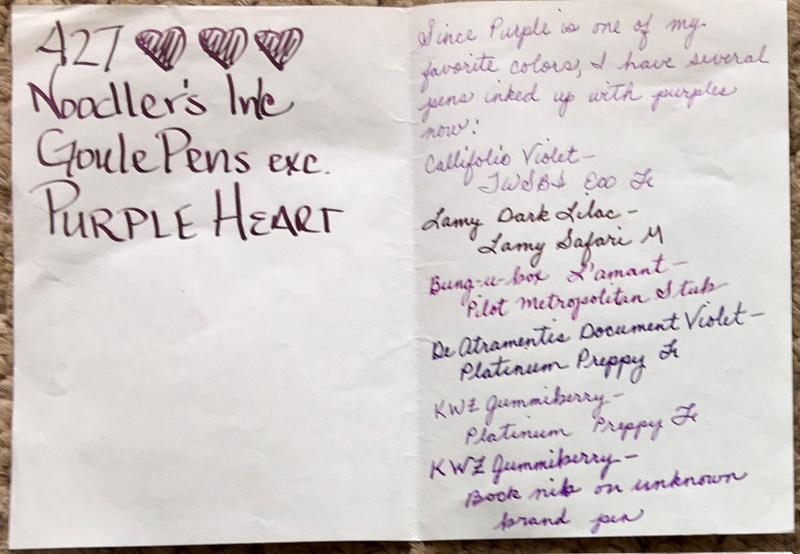 427
Noodler's Ink
Goule Pens exc.
PURPLE HEART
Since Purple is one of my
favorite colors, I have several
pens inked up with purples
now:
Callifolio Violet –
TWSBI Eco F
Lamy Dark Lilac –
Lamy Safari M
Bung-u-box L'amant –
Pilot Metropolitan Stub
De Atramentis Document Violet –
Platinum Preppy F
KWZ Gummiberry –
Platinum Preppy F
KWZ Gummiberry –
Bock nib on unknown
brand pen